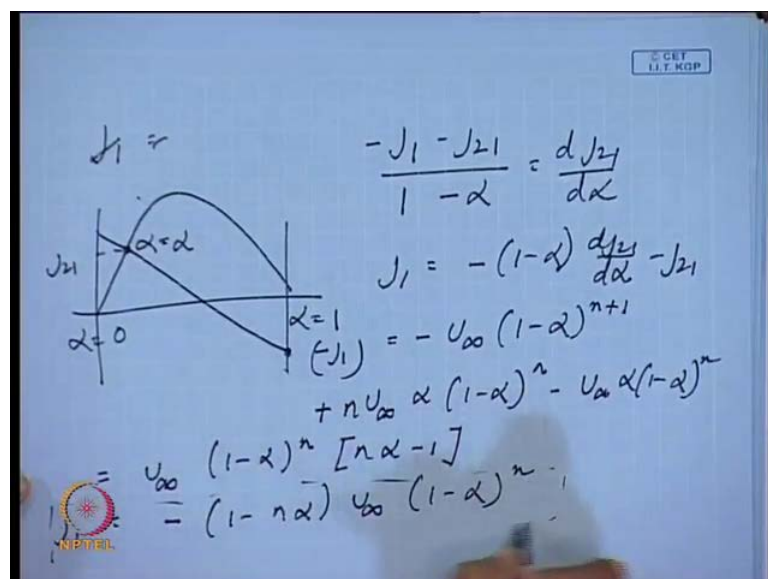 © CET
I.I.T. KGP
j₁ =
(-j₁ - j₂₁)/(1 - α) = dj₂₁/dα
j₂₁
α=α
j₁ = -(1-α) dj₂₁/dα - j₂₁
α=0
α=1
(-j₁)
= - u∞ (1-α)ⁿ⁺¹
+ n u∞ α (1-α)ⁿ - u∞ α(1-α)ⁿ
= u∞ (1-α)ⁿ [nα-1]
= - (1-nα) u∞ (1-α)ⁿ
NPTEL